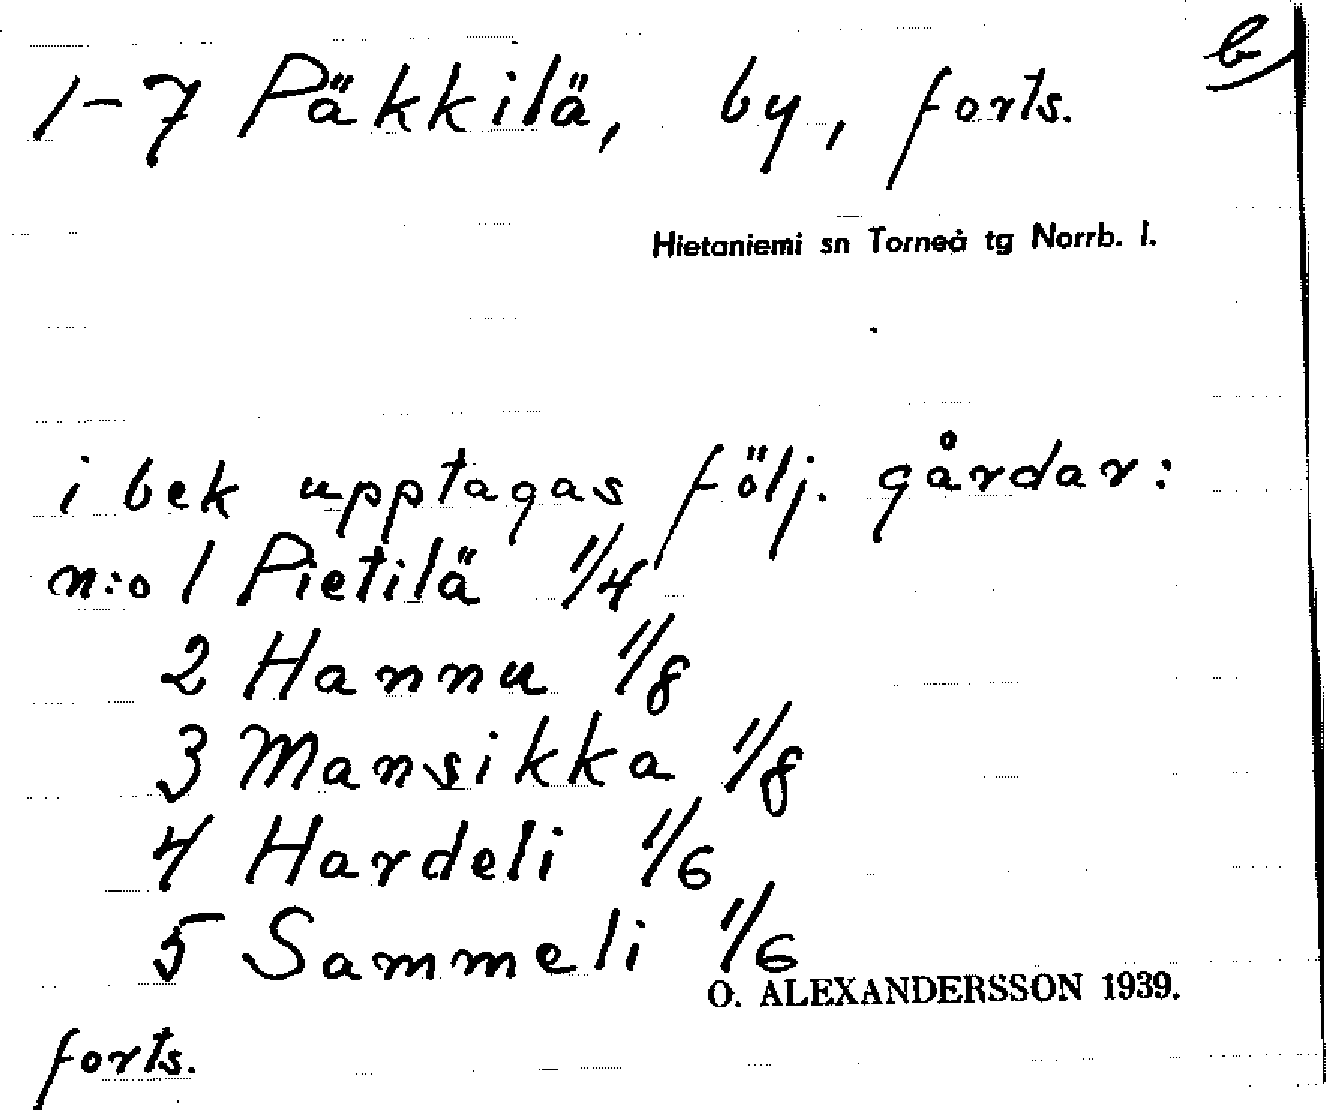 b
1-7 Päkkilä, by, forts.
Hietaniemi sn Torneå tg Norrb. l.
i bek upptagas följ. gårdar:
n:o 1 Pietilä 1/4
2 Hannu 1/8
3 Mansikka 1/8
4 Hardeli 1/6
5 Sammeli 1/6
O. ALEXANDERSSON 1939.
forts.